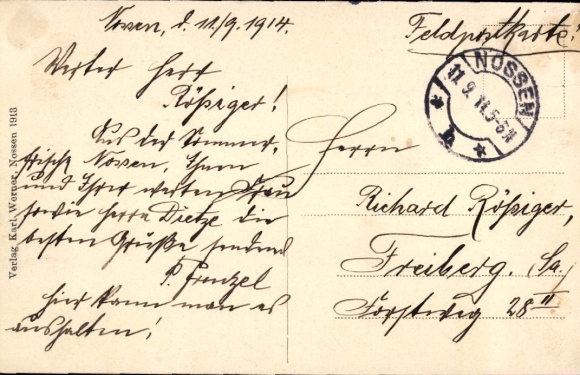 Nossen, d. 11/9. 1914.
Werter Herr
Rößiger!
Aus der Sommer-
frische Nossen, Ihnen
und Ihrer werten Frau
sowie Herrn Dietze die
besten Grüße sendend
P. Frenzel
hier kann man es
aushalten!
Feldpostkarte!
NOSSEN
11.9.14.5-6N
* b *
Herrn
Richard Rößiger,
Freiberg. Sa.
Forstweg 28 II
Verlag Karl Werner, Nossen 1913